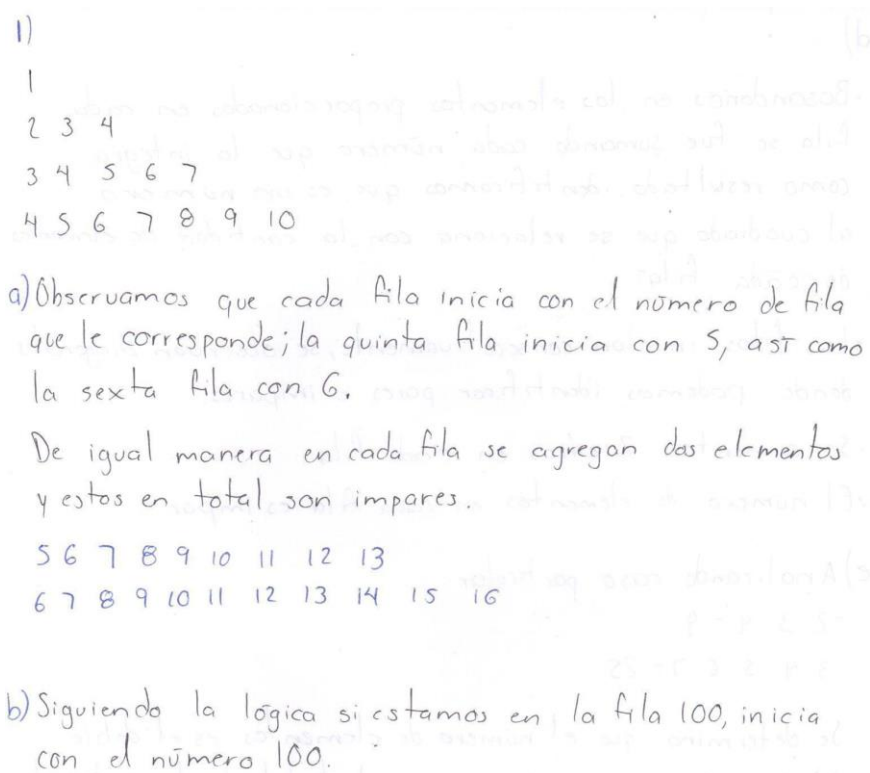 1)
1
2 3 4
3 4 5 6 7
4 5 6 7 8 9 10
a) Observamos que cada fila inicia con el número de fila
que le corresponde; la quinta fila inicia con 5, así como
la sexta fila con 6.
De igual manera en cada fila se agregan dos elementos
y estos en total son impares.
5 6 7 8 9 10 11 12 13
6 7 8 9 10 11 12 13 14 15 16
b) Siguiendo la lógica si estamos en la fila 100, inicia
con el número 100.